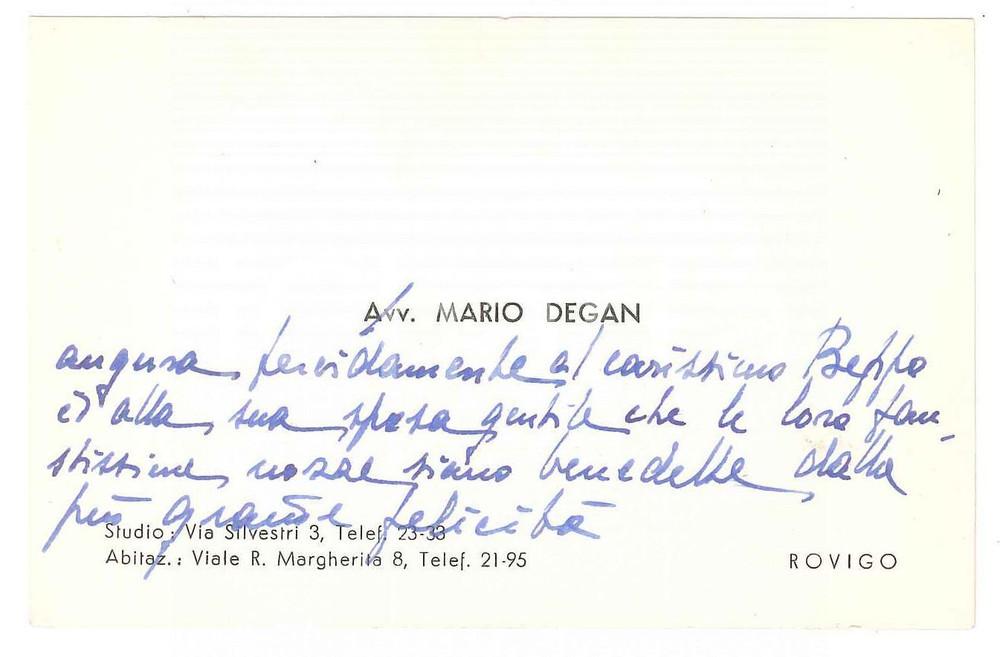 Avv. MARIO DEGAN
augura fervidamente al carissimo Beppo
ed alla sua sposa gentile che le loro fau-
stissime nozze siano benedette dalla
più grande felicità
Studio: Via Silvestri 3, Telef. 23-33
Abitaz.: Viale R. Margherita 8, Telef. 21-95
ROVIGO